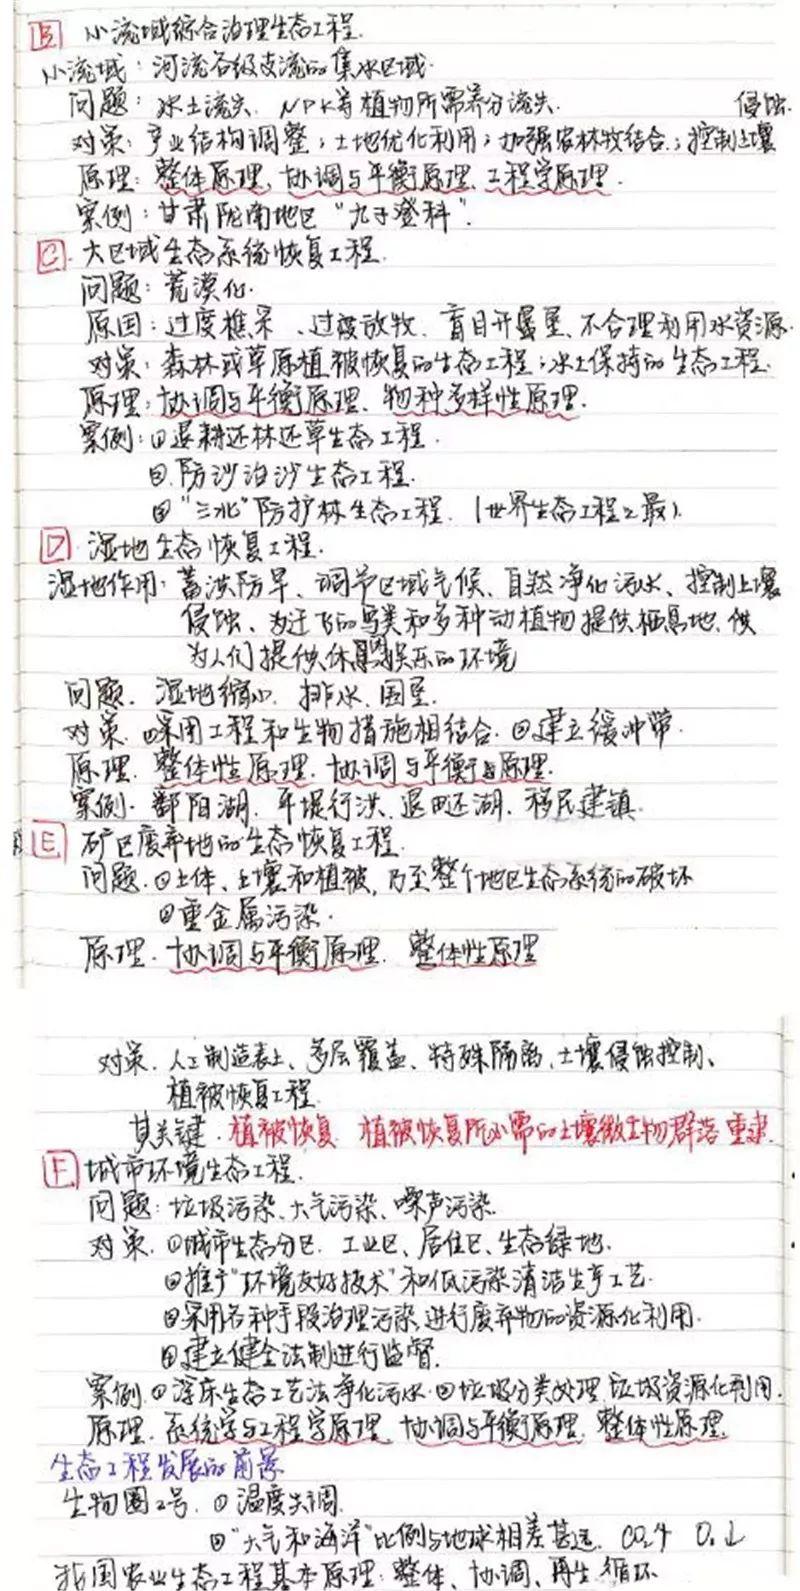 B 小流域综合治理生态工程.
小流域：河流各级支流的集水区域.
问题：水土流失、NPK等植物所需养分流失.
侵蚀.
对策：产业结构调整；土地优化利用；加强农林牧结合；控制土壤
原理：整体原理，协调与平衡原理、工程学原理.
案例：甘肃陇南地区“九子登科”.
C. 大区域生态系统恢复工程.
问题：荒漠化.
原因：过度樵采、过度放牧、盲目开垦、不合理利用水资源.
对策：森林或草原植被恢复的生态工程；水土保持的生态工程.
原理：协调与平衡原理、物种多样性原理.
案例：①退耕还林还草生态工程.
②.防沙治沙生态工程.
③“三北”防护林生态工程.（世界生态工程之最）.
D 湿地生态恢复工程.
湿地作用：蓄洪防旱、调节区域气候、自然净化污水、控制土壤
侵蚀、为迁飞的鸟类和多种动植物提供栖息地、供
为人们提供休闲娱乐的环境
问题. 湿地缩小、排水、围垦.
对策. ①采用工程和生物措施相结合. ②建立缓冲带.
原理. 整体性原理. 协调与平衡与原理.
案例. 鄱阳湖. 平堤行洪、退田还湖. 移民建镇.
E 矿区废弃地的生态恢复工程.
问题. ①土体、土壤和植被，乃至整个地区生态系统的破坏
②重金属污染.
原理. 协调与平衡原理. 整体性原理
对策. 人工制造表土、多层覆盖、特殊隔离、土壤侵蚀控制、
植被恢复工程.
其关键. 植被恢复 植被恢复所必需的土壤微生物群落重建.
F 城市环境生态工程.
问题：垃圾污染、大气污染、噪声污染.
对策. ①城市生态分区. 工业区、居住区、生态绿地.
②推广“环境友好技术”和低污染清洁生产工艺.
③采用各种手段治理污染，进行废弃物的资源化利用.
④建立健全法制进行监督.
案例. ①浮床生态工艺法净化污水. ②垃圾分类处理 垃圾资源化利用.
原理. 系统学与工程学原理. 协调与平衡原理. 整体性原理.
生态工程发展的前景
生物圈2号. ①温度失调.
②“大气和海洋”比例与地球相差甚远. CO₂↑ O₂↓
我国农业生态工程基本原理：整体、协调、再生、循环.